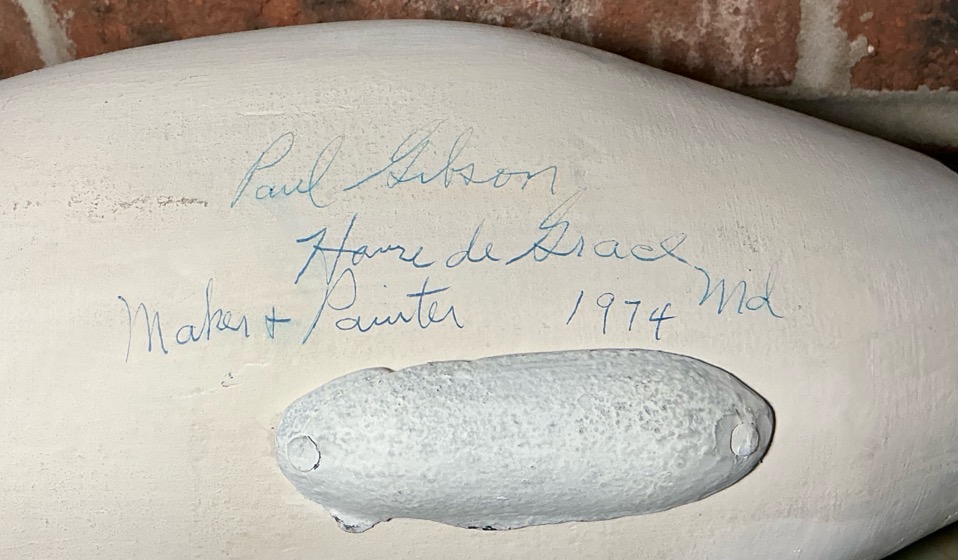 Paul Gibson
Havre de Grace Md
Maker + Painter 1974